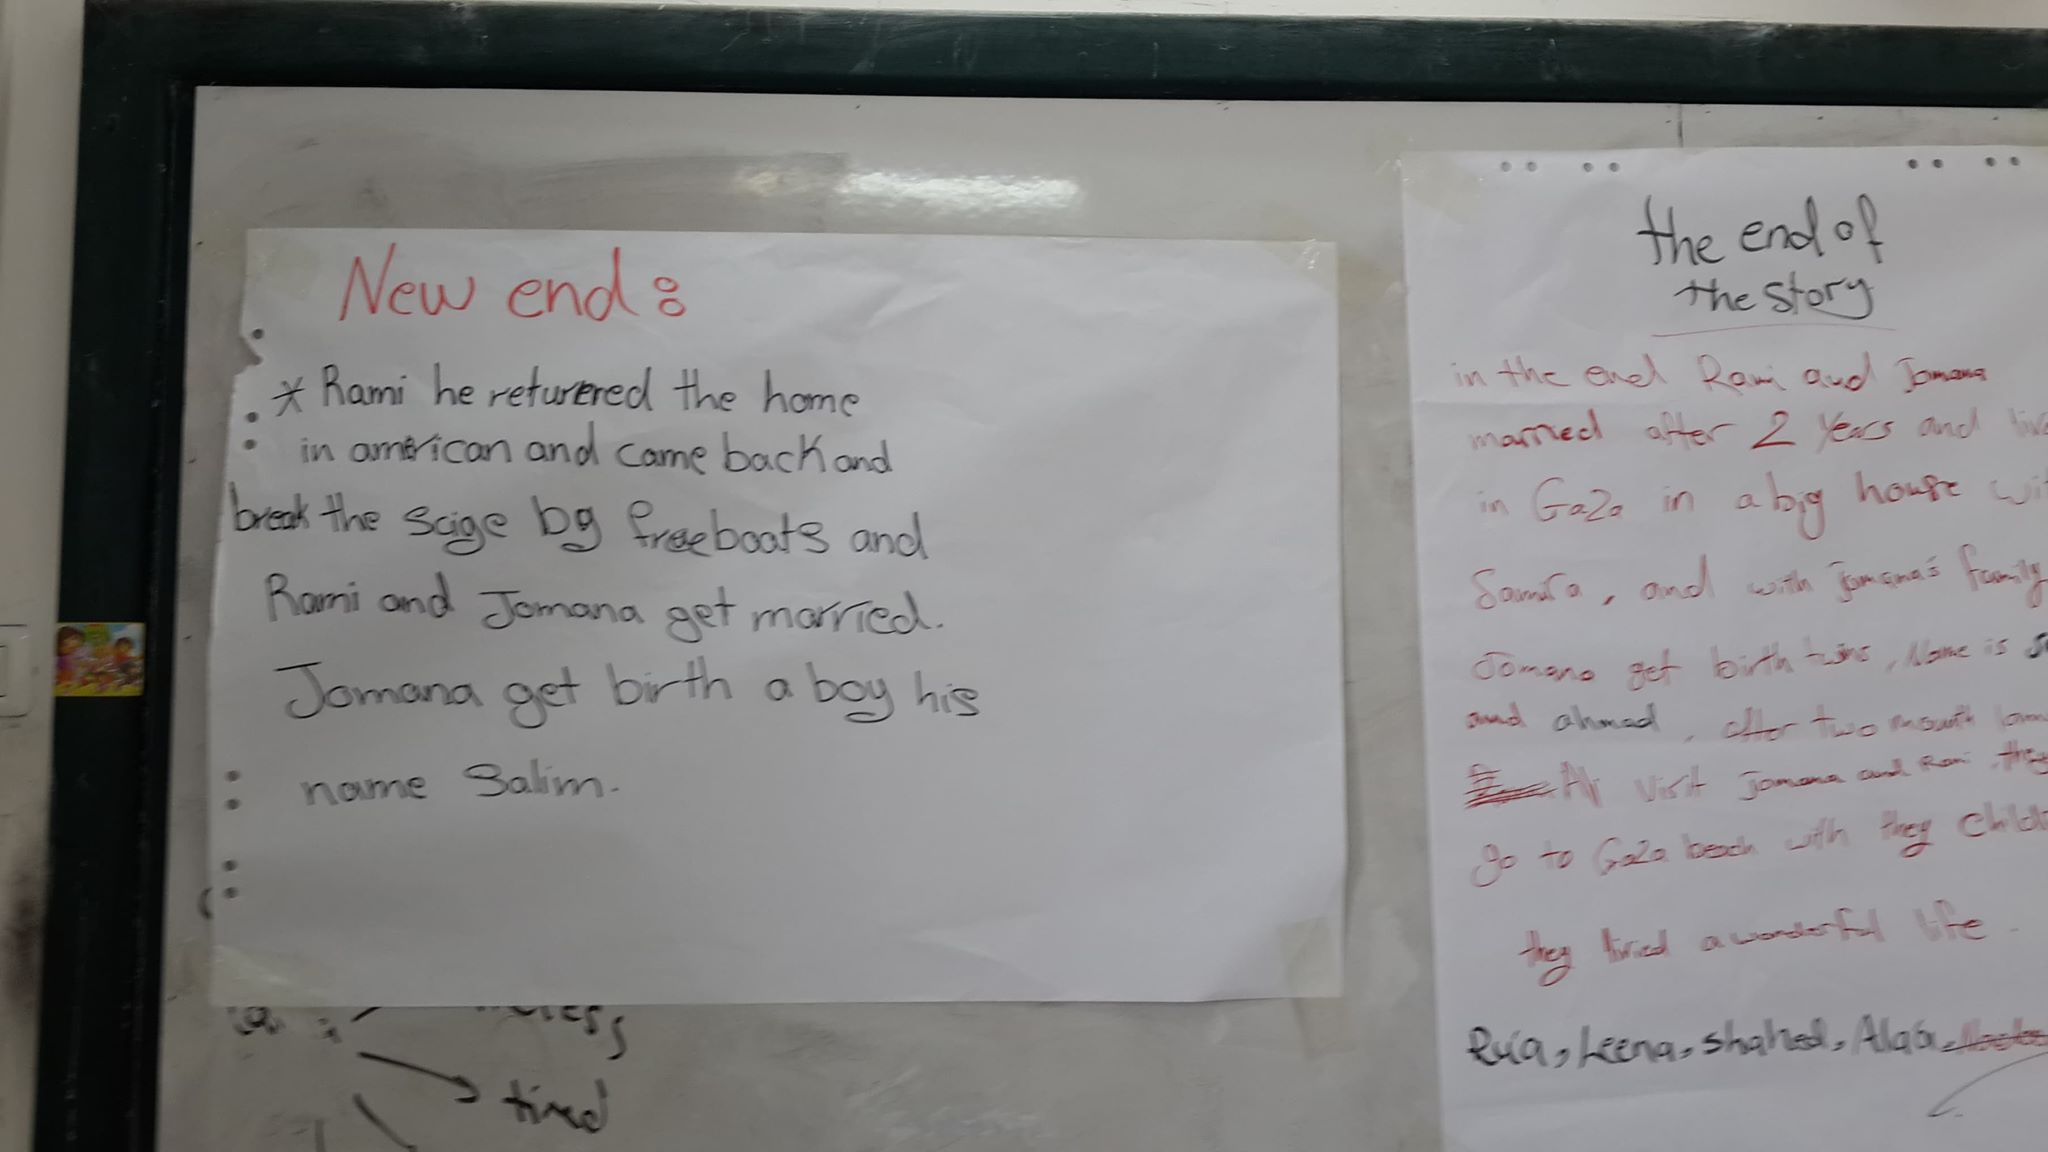 New end:
* Rami he returered the home
in american and came back and
break the scige by freeboats and
Rami and Jomana get married.
Jomana get birth a boy his
name Salim.
tired
the end of
the story
in the end Rami and Jomana
married after 2 Years and
in Gaza in a big house
Samira, and with jomana's family
Jomana get birth twins, Name is
and ahmad, after two mounth
Ali visit jomana and Rami
go to Gaza beach with they
they livied a wonderful life.
Leena, shahed, Alaa,